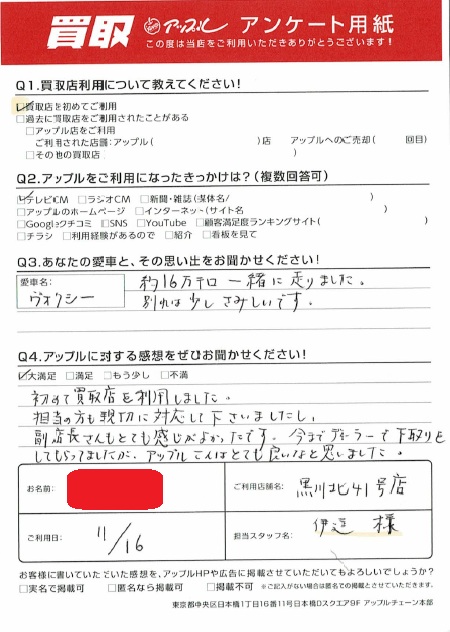 買取 アップル アンケート用紙
この度は当店をご利用いただきありがとうございます!
Q1.買取店利用について教えてください!
☑買取店を初めてご利用
□過去に買取店をご利用されたことがある
□アップル店をご利用
ご利用された店舗:アップル( )店 アップルへのご売却( 回目)
□その他の買取店( )
Q2.アップルをご利用になったきっかけは?(複数回答可)
☑テレビCM □ラジオCM □新聞・雑誌(媒体名/ )
□アップルのホームページ □インターネット(サイト名 )
□Googleクチコミ □SNS □YouTube □顧客満足度ランキングサイト( )
□チラシ □利用経験があるので □紹介 □看板を見て
Q3.あなたの愛車と、その思い出をお聞かせください!
愛車名:
ヴォクシー
約16万キロ一緒に走りました。
別れは少しさみしいです。
Q4.アップルに対する感想をぜひお聞かせください!
☑大満足 □満足 □もう少し □不満
初めて買取店を利用しました。
担当の方も親切に対応して下さいましたし、
副店長さんもとても感じがよかったです。今までディーラーで下取りを
してもらってましたが、アップルさんはとても良いなと思いました。
お名前:
ご利用店舗名: 黒川北41号店
ご利用日: 11/16
担当スタッフ名: 伊達 様
お客様に書いていただいた感想を、アップルHPや広告に掲載させていただいてもよろしいでしょうか?
□実名で掲載可 □匿名なら掲載可 □掲載不可 ※ご記入がない場合は匿名での掲載とさせていただきます。
東京都中央区日本橋1丁目16番11号日本橋Dスクエア9F アップルチェーン本部